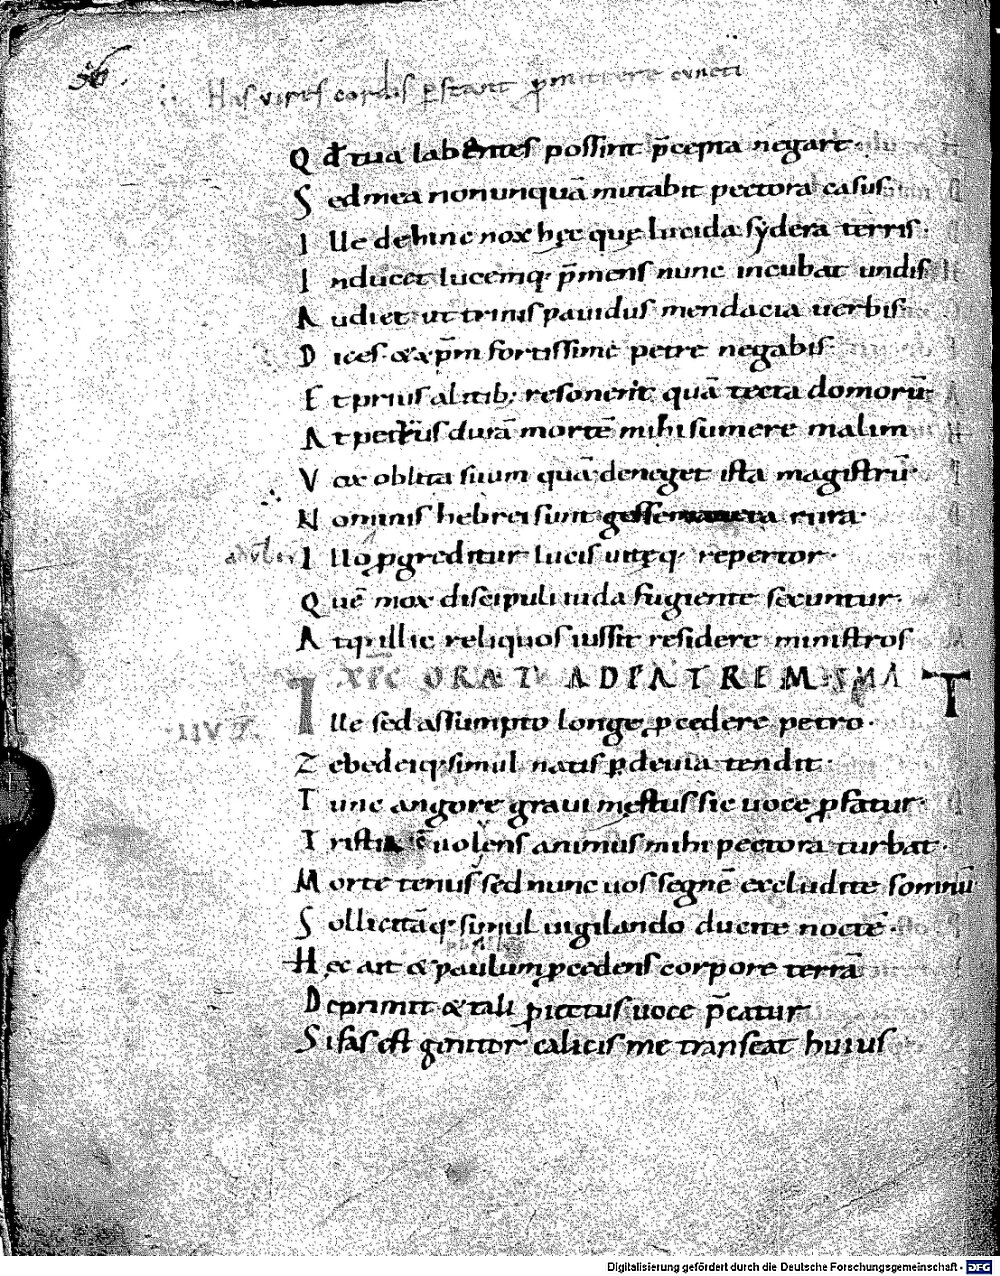 56.
Has vires cordis p̄stant p̱mittere cuncti
Qđ tua labentes possint p̄cepta negare·
Sed mea nonunquā mutabit pectora casus·
Ille dehinc nox hęc quę lucida sydera terris·
Inducet lucemq· p̄mens nunc incubat undis
Audiet ut trinis pauidus mendacia uerbis·
Dices· & xp̄m fortissime petre negabis·
Et prius alitib; resonent quā tecta domorū·
At petrus durā mortē mihi sumere malim
Vox oblita suum quā deneget ista magistrū·
Nominis hebrei sunt gessemaneia rura·
Illo p̱greditur lucis uitęq· repertor·
Quē mox discipuli iuda fugiente secuntur·
Atq· illic reliquos iussit residere ministros
XP̄C ORAT AD PATREM
Ille sed assumpto longe p̱cedere petro·
Zebedeiq· simul natis p̱ deuia tendit·
Tunc angore graui mestus sic uoce p̱fatur·
Tristia uolens animus mihi pectora turbat·
Morte tenus sed nunc uos segnē excludite somnū
Sollicitāq· simul uigilando ducite noctē·
Hęc ait & paulum p̱cedens corpore terrā
Deprimit & tali p̱iectus uoce p̄catur
Si fas est genitor calicis me transeat huius
Digitalisierung gefördert durch die Deutsche Forschungsgemeinschaft - DFG